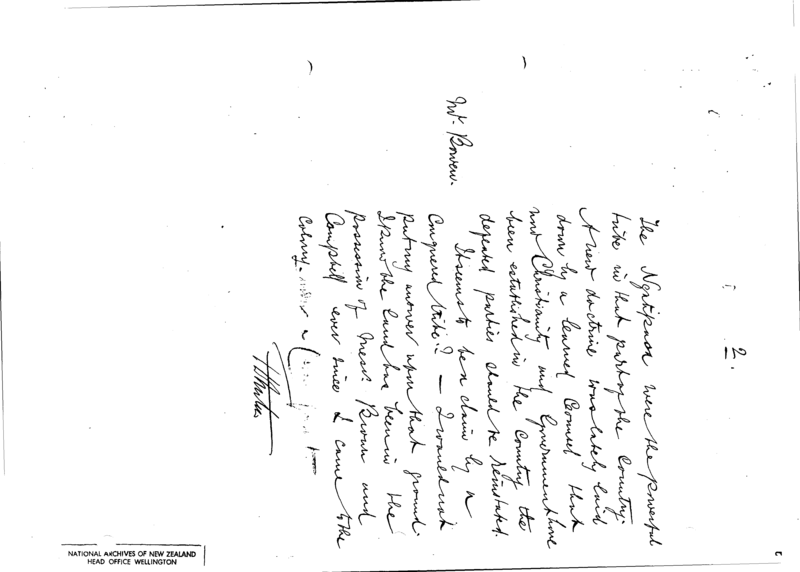 2.
The Ngatipaoa were the powerful
tribe in that part of the Country.
A new doctrine was lately laid
down by a learned Counsel that
now Christianity and Government have
been established in the Country the
defeated parties should be reinstated.
Mr. Bowen.
It seems to be a claim by a
Conquered tribe? — I would not
put my answer upon that ground.
I know the land has been in the
possession of Messrs. Brown and
Campbell ever since I came to the
Colony.
NATIONAL ARCHIVES OF NEW ZEALAND
HEAD OFFICE WELLINGTON